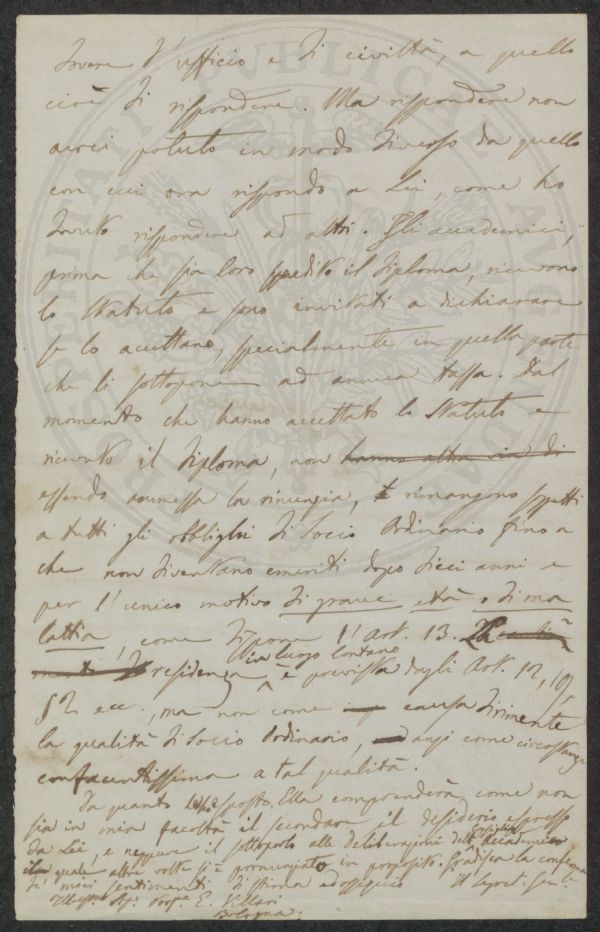 dovere d'ufficio e di civiltà, a quello
cioè di rispondere. Ma rispondere non
avrei potuto in modo diverso da quello
con cui ora rispondo a Lei, come ho
dovuto rispondere ad altri. Gli accademici,
prima che sia loro spedito il diploma, ricevono
lo Statuto e sono invitati a dichiarare
se lo accettano, specialmente in quella parte
che li sottopone ad annua tassa. Dal
momento che hanno accettato lo Statuto e
ricevuto il diploma, non hanno altra via di
essendo ammessa la rinunzia, rimangono soggetti
a tutti gli obblighi di Socio Ordinario fino a
che non diventano emeriti dopo dieci anni e
per l'unico motivo di grave età o di ma
lattia, come dispone l'Art. 13.
in luogo lontano
residenza è prevista dagli Art. 12, 19,
§2 ecc., ma non come causa dirimente
la qualità di Socio Ordinario, anzi come circostanza
confacentissima a tal qualità.
Da quanto esposto, Ella comprenderà come non
sia in mia facoltà il secondare il desiderio espresso
da Lei, e neppure il sottoporlo alle deliberazioni
quale altre volte si è pronunziato in proposito. Gradisca la conferma
de' miei sentimenti di stima ed ossequio Il Segret. Gen.
E. Villari
Bologna.